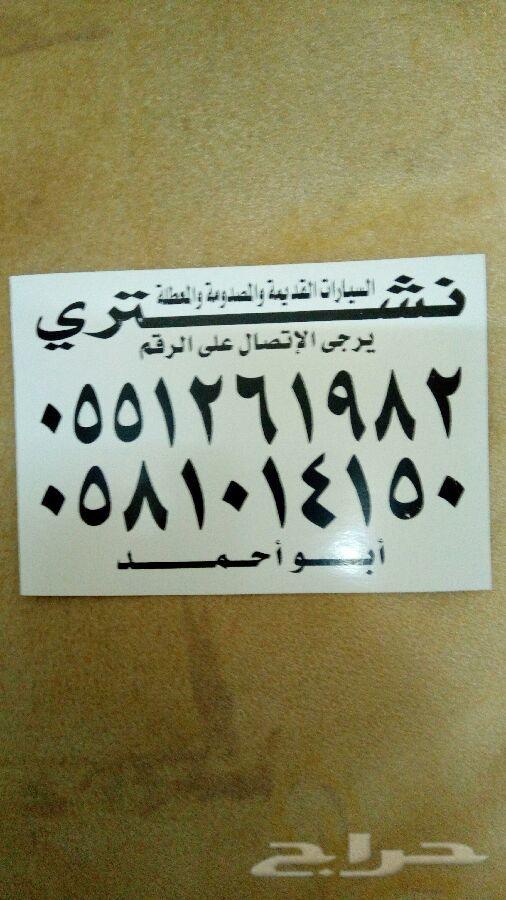 نشتري
السيارات القديمة والمصدومة والمعطلة
يرجى الإتصال على الرقم
٠٥٥١٢٦١٩٨٢
٠٥٨١٠١٤١٥٠
أبو أحمد
حراج